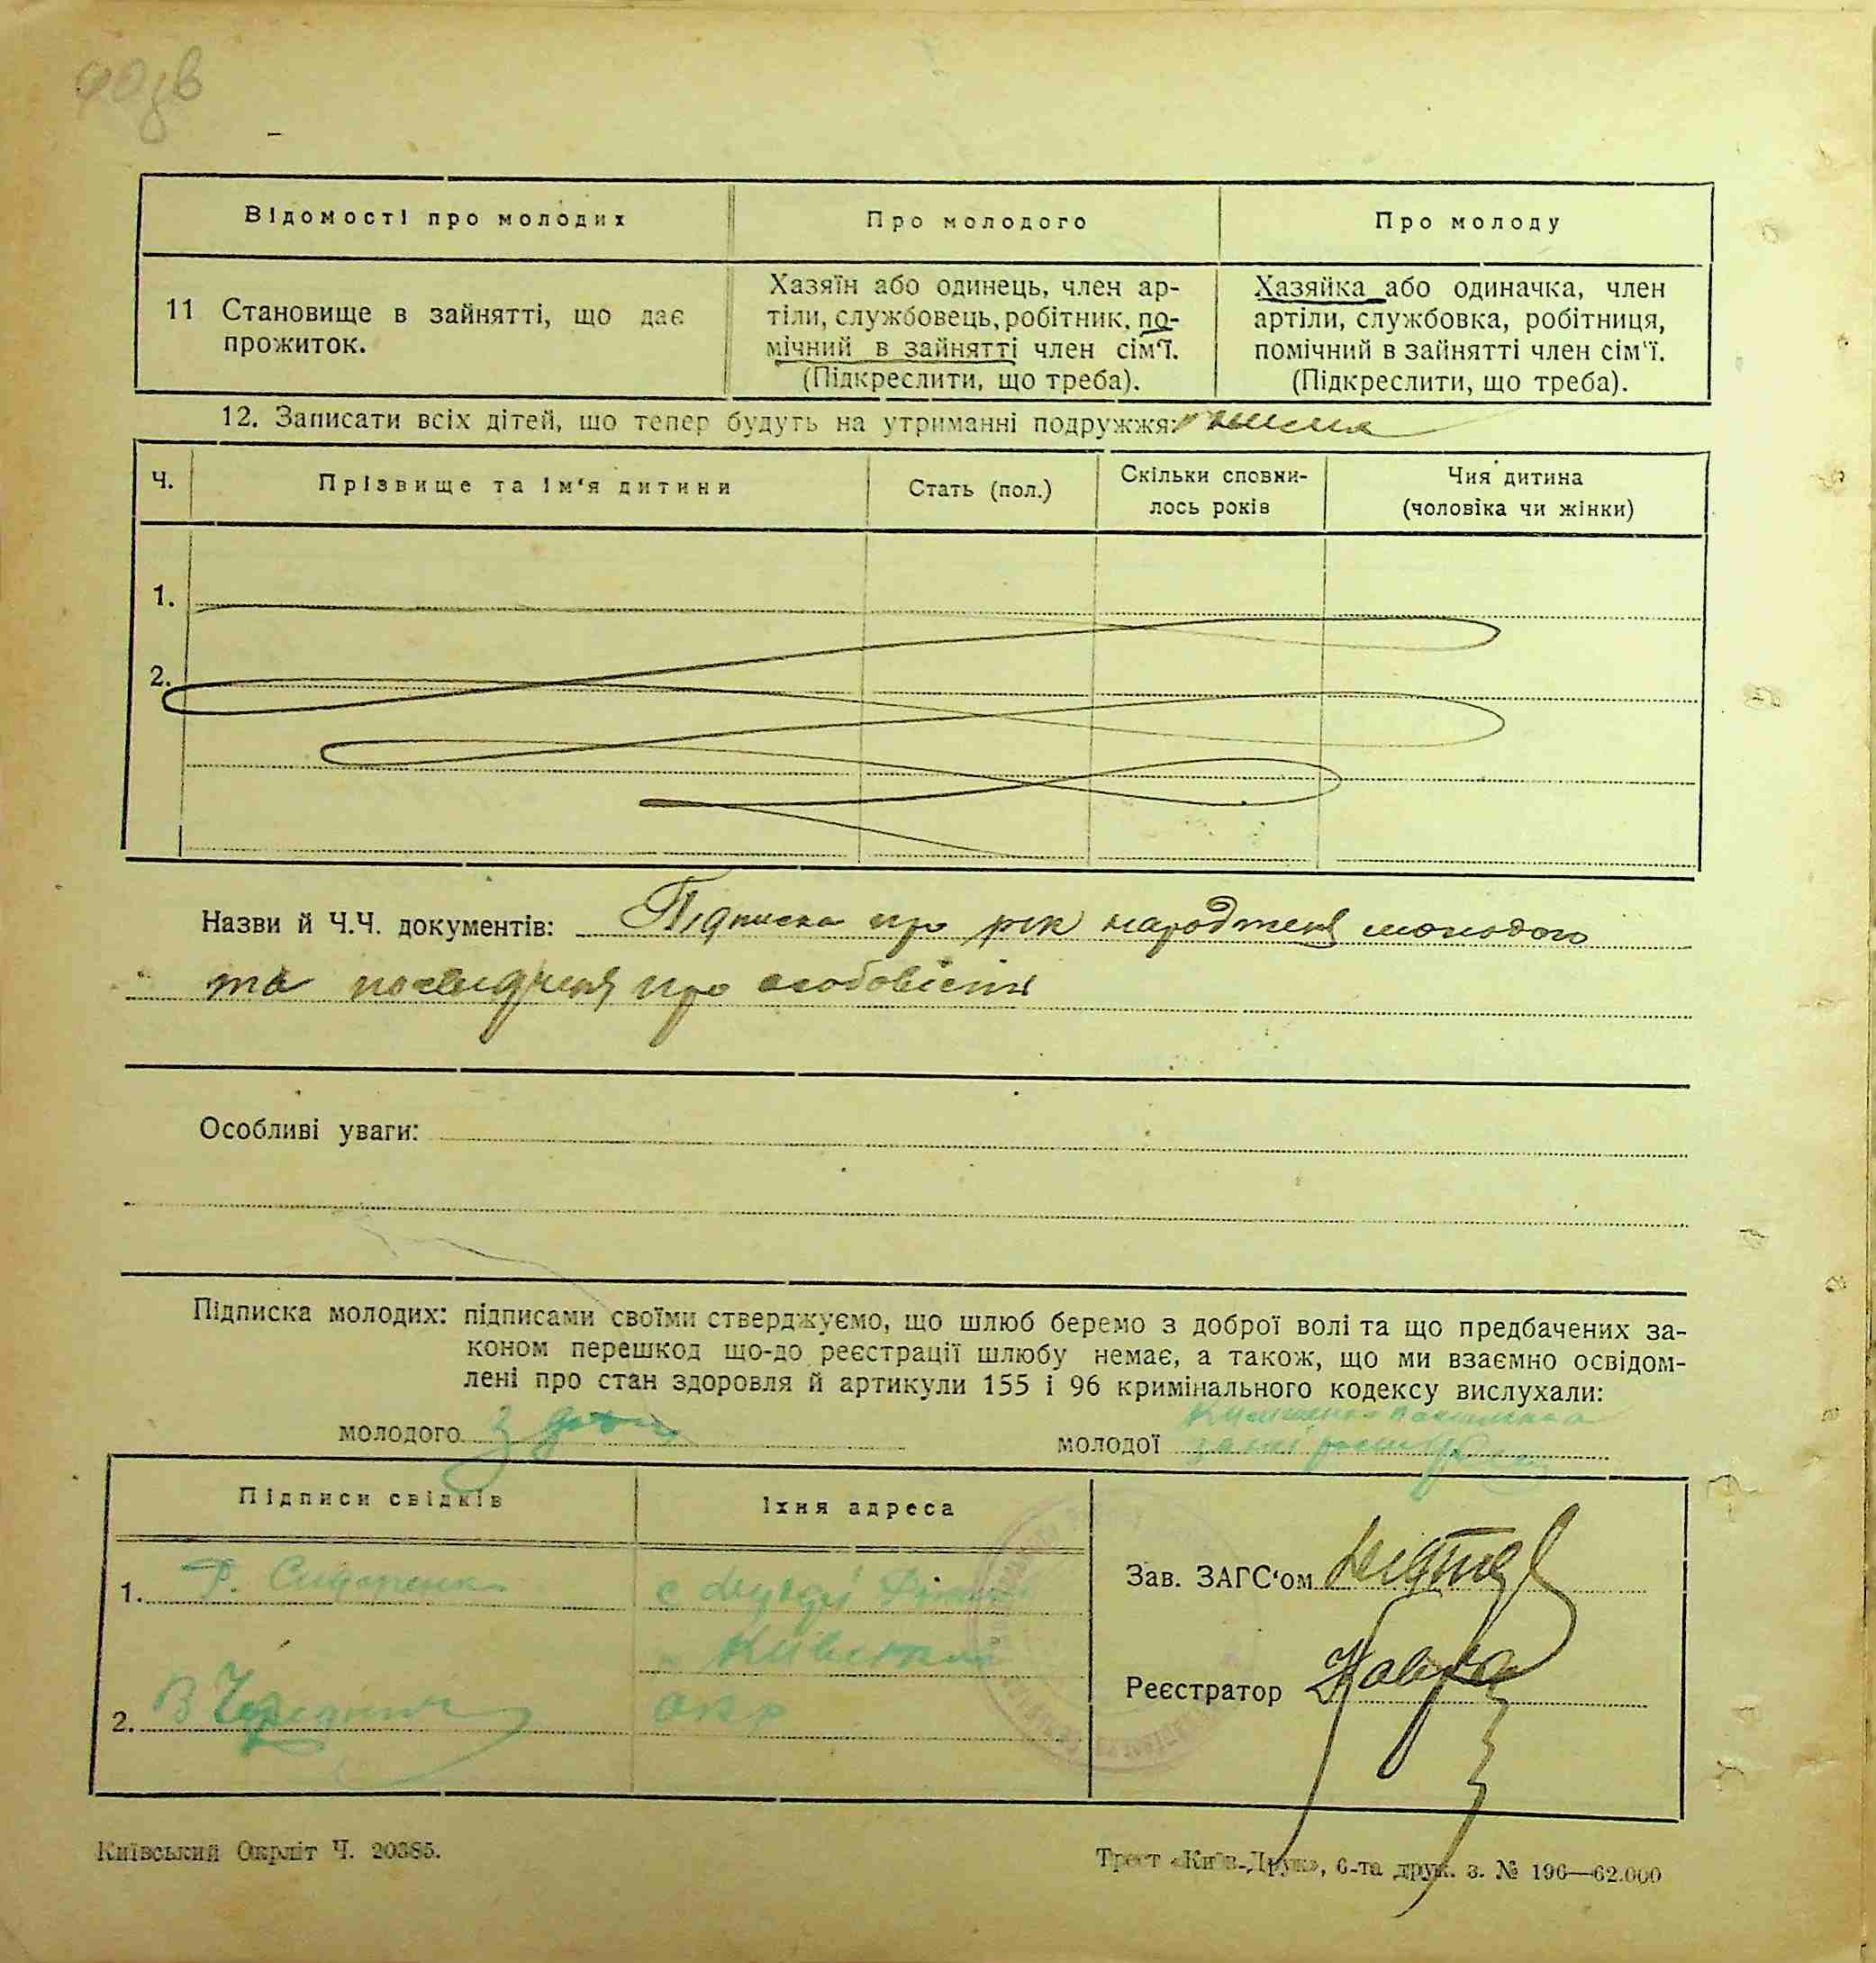 Відомості про молодих
Про молодого
Про молоду
11 Становище в зайнятті, що дає
прожиток.
Хазяїн або одинець, член ар-
тіли, службовець, робітник, по-
мічний в зайнятті член сім'ї.
(Підкреслити, що треба).
Хазяйка або одиначка, член
артіли, службовка, робітниця,
помічний в зайнятті член сім'ї.
(Підкреслити, що треба).
12. Записати всіх дітей, що тепер будуть на утриманні подружжя:
Ч.
Прізвище та ім'я дитини
Стать (пол.)
Скільки сповни-
лось років
Чия дитина
(чоловіка чи жінки)
1.
2.
Назви й Ч.Ч. документів: Підписка про рік народження молодого
та посвідчення про особовість
Особливі уваги:
Підписка молодих: підписами своїми стверджуємо, що шлюб беремо з доброї волі та що предбачених за-
коном перешкод що-до реєстрації шлюбу немає, а також, що ми взаємно освідом-
лені про стан здоровля й артикули 155 і 96 кримінального кодексу вислухали:
молодого
молодої
Підписи свідків
Їхня адреса
1. Ф. Сидоренко
с
Київської
2. В
окр
Зав. ЗАГС'ом
Реєстратор
Київський Окрліт Ч. 20385.
Трест «Київ-Друк», 6-та друк. з. № 196—62.000